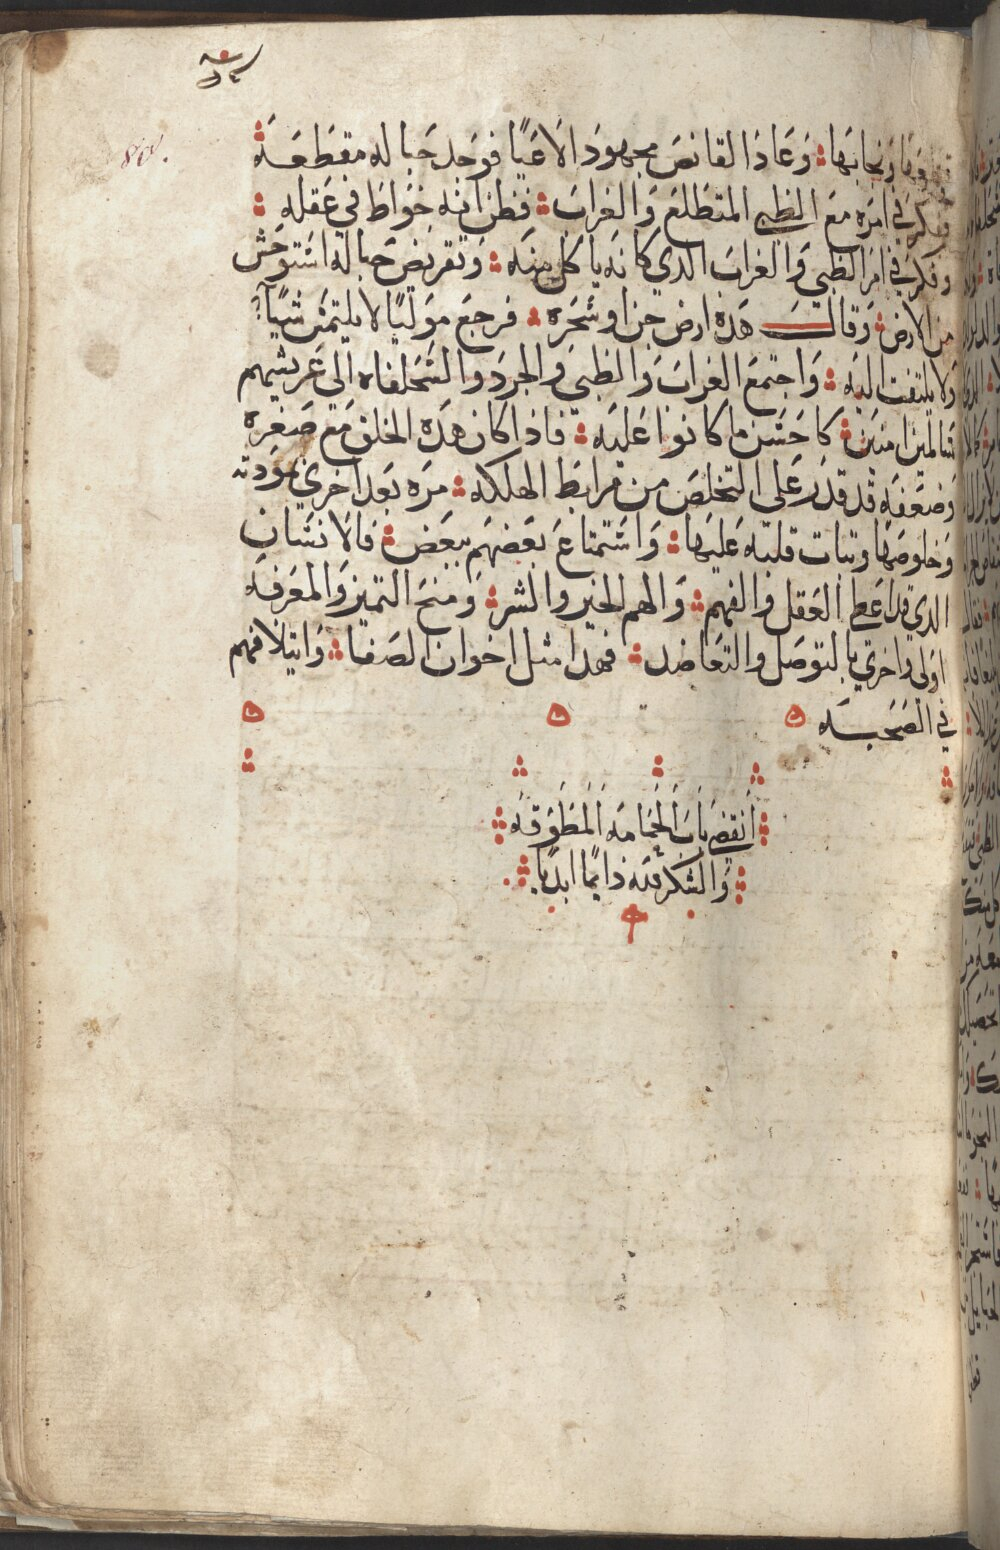 80.
ونجا بها وعاد القانص مجهودا لاغبا فوجد حباله مقطعه
ففكر في امره مع الظبي المتطلع والغراب فظن انه خواط في عقله
وفكر في امر الظبي والغراب الدي كانه ياكل منه وتقريض حباله استوحش
من الارض وقال هده ارض جن او سحره فرجع موليا لا يلتمس شيا
ولا يلتفت اليه واجتمع الغراب والظبي والجرد والسحلفاه الى عريشهم
سالمين امنين كاحسن ما كانوا عليه فاذا كان هذه الخلق مع صغره
وضعفه قد قدر على التخلص من مرابط الهلكه مره بعد اخري بمودته
وخلوصها وتبات قلبه عليها واستمتاع بعضهم ببعض فالانسان
الدي قد اعطي العقل والفهم والهم الخير والشر ومنح التميز والمعرفه
اولى واحري بالتوصل والتعاضد فهدا مثل اخوان الصفا وايتلافهم
في الصحبه
انقضى باب الحمامه المطوقه
والشكر لله دايما ابديا